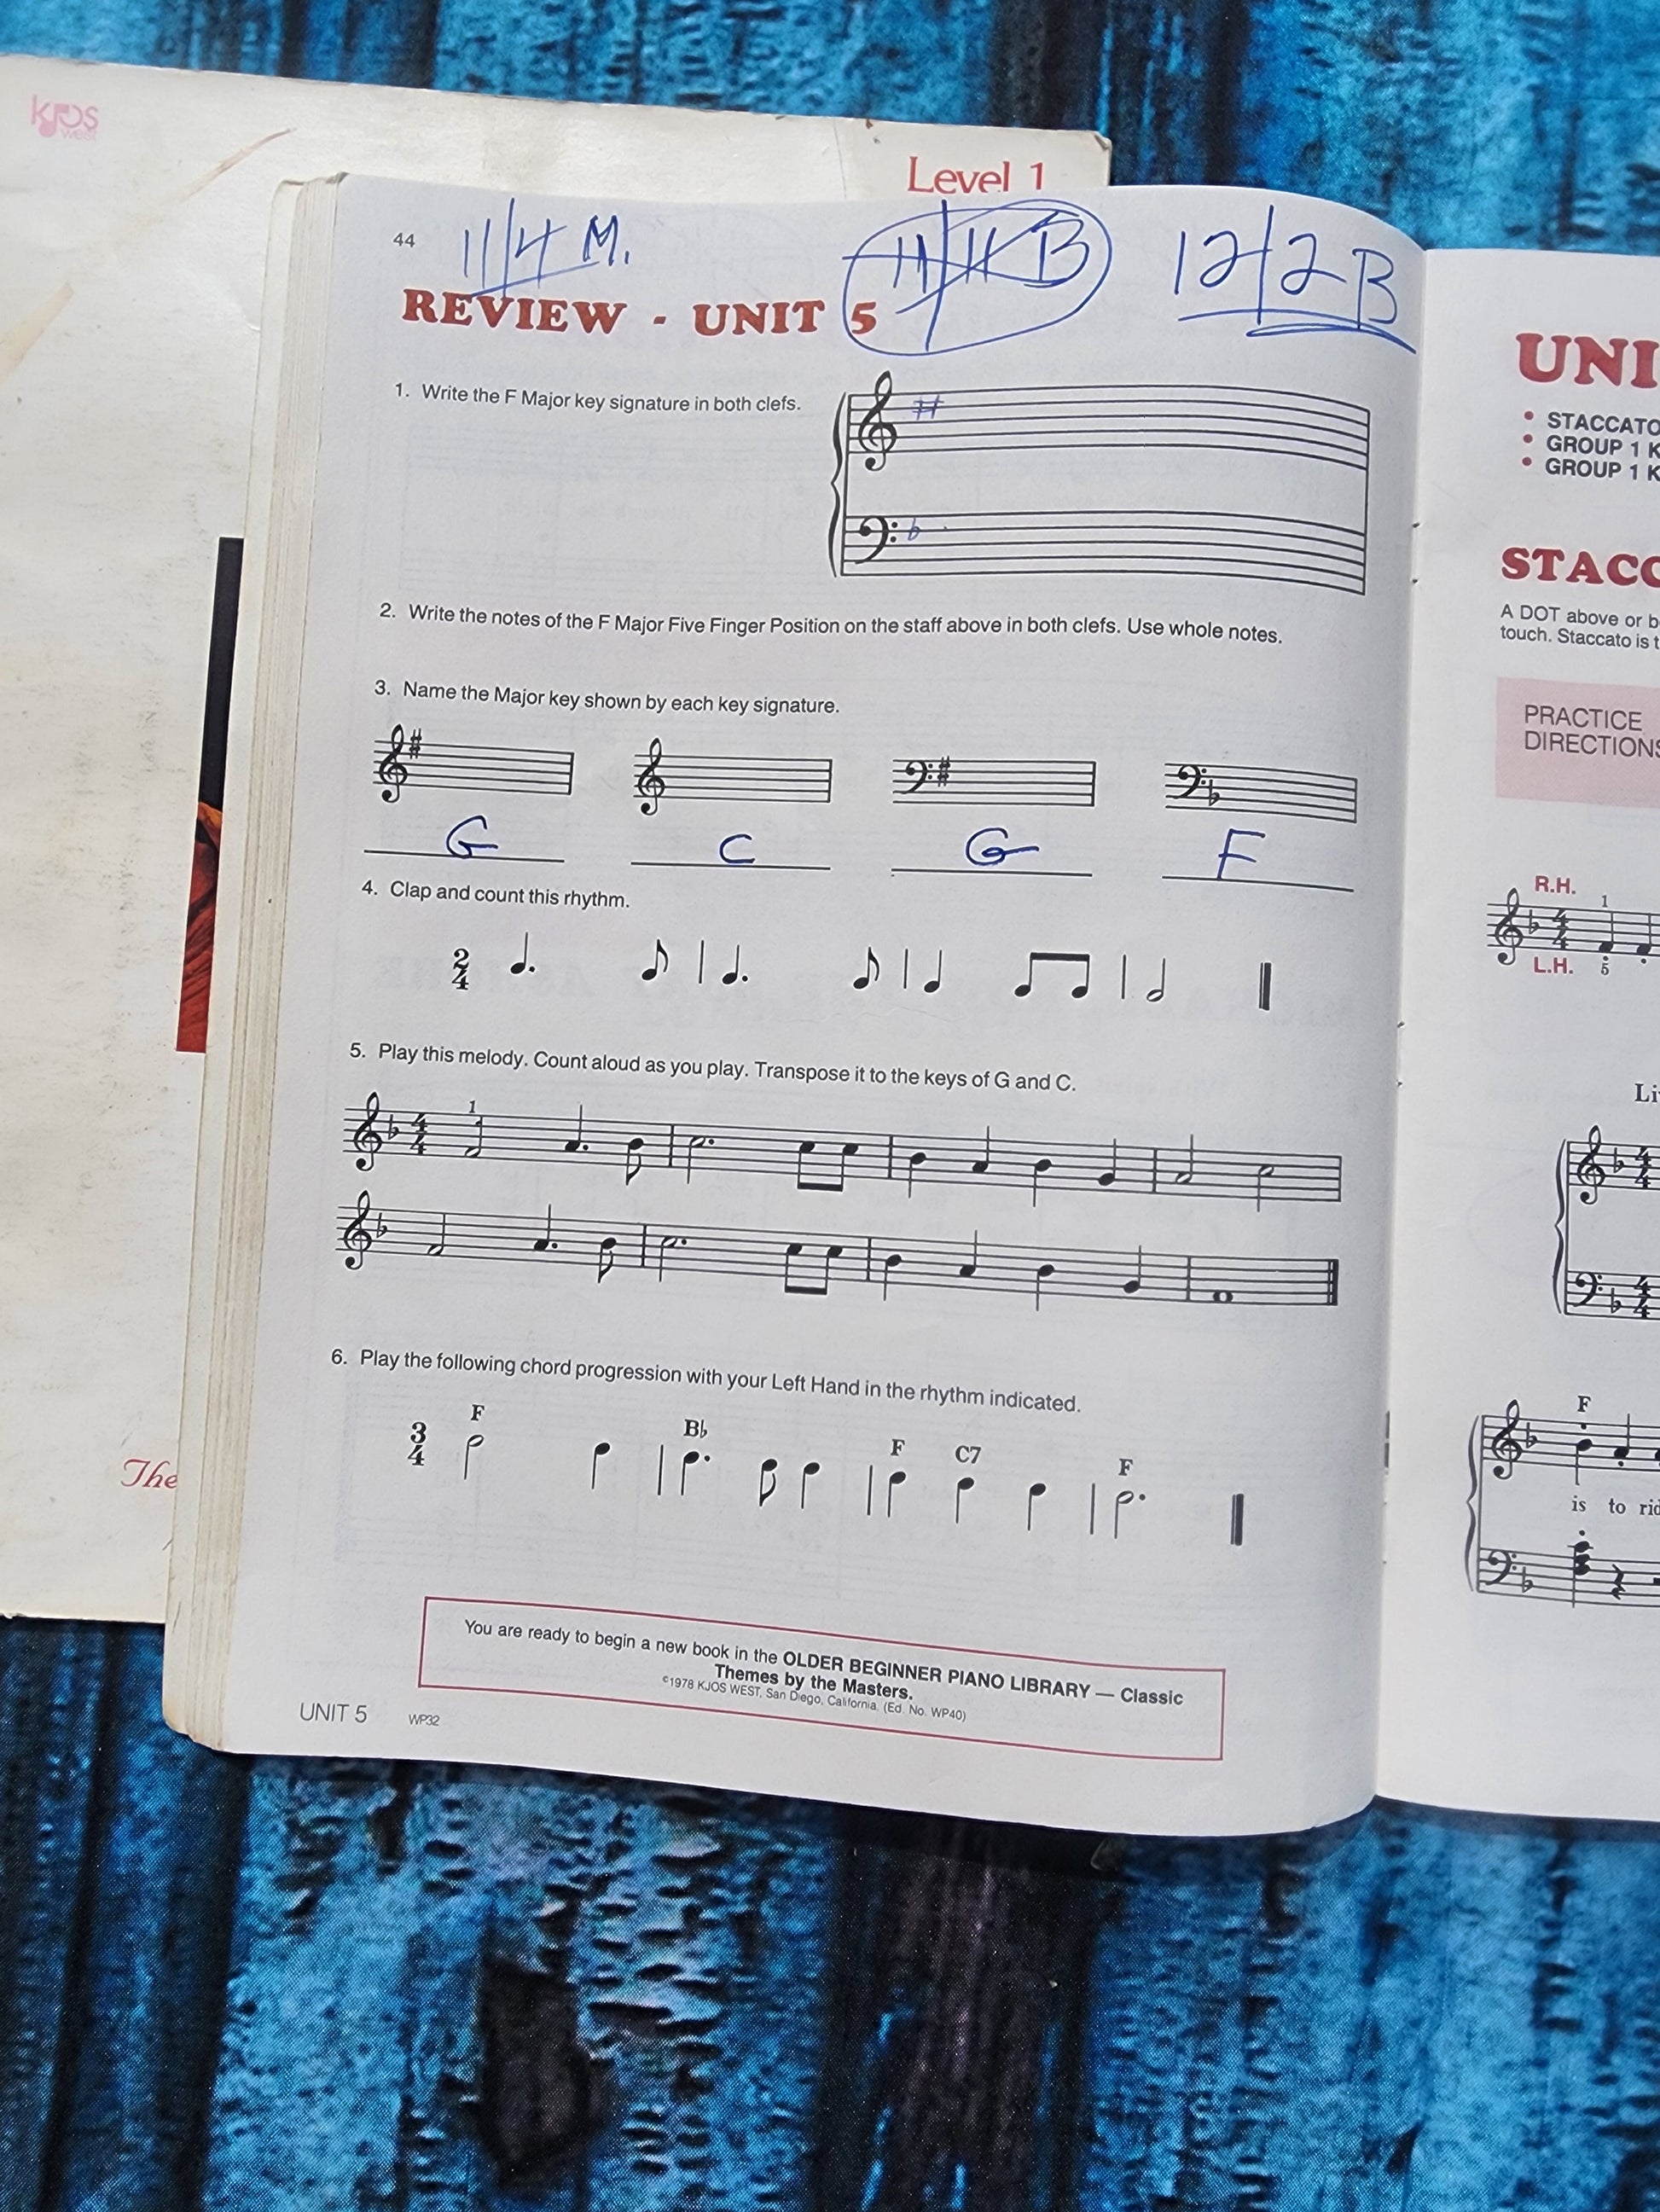 kjos
west
Level 1
44
11/4 M.
11/11 B
12/2 B
REVIEW - UNIT 5
1. Write the F Major key signature in both clefs.
2. Write the notes of the F Major Five Finger Position on the staff above in both clefs. Use whole notes.
3. Name the Major key shown by each key signature.
G C G F
4. Clap and count this rhythm.
2
4
5. Play this melody. Count aloud as you play. Transpose it to the keys of G and C.
1
4
4
6. Play the following chord progression with your Left Hand in the rhythm indicated.
F B♭ F C7 F
3
4
You are ready to begin a new book in the OLDER BEGINNER PIANO LIBRARY — Classic
Themes by the Masters.
©1978 KJOS WEST, San Diego, California. (Ed. No. WP40)
UNIT 5 WP32
The
UNI
• STACCATO
• GROUP 1 K
• GROUP 1 K
STACC
A DOT above or b
touch. Staccato is t
PRACTICE
DIRECTIONS
R.H.
1
4
4
L.H.
5
Li
4
4
4
4
F
is to rid